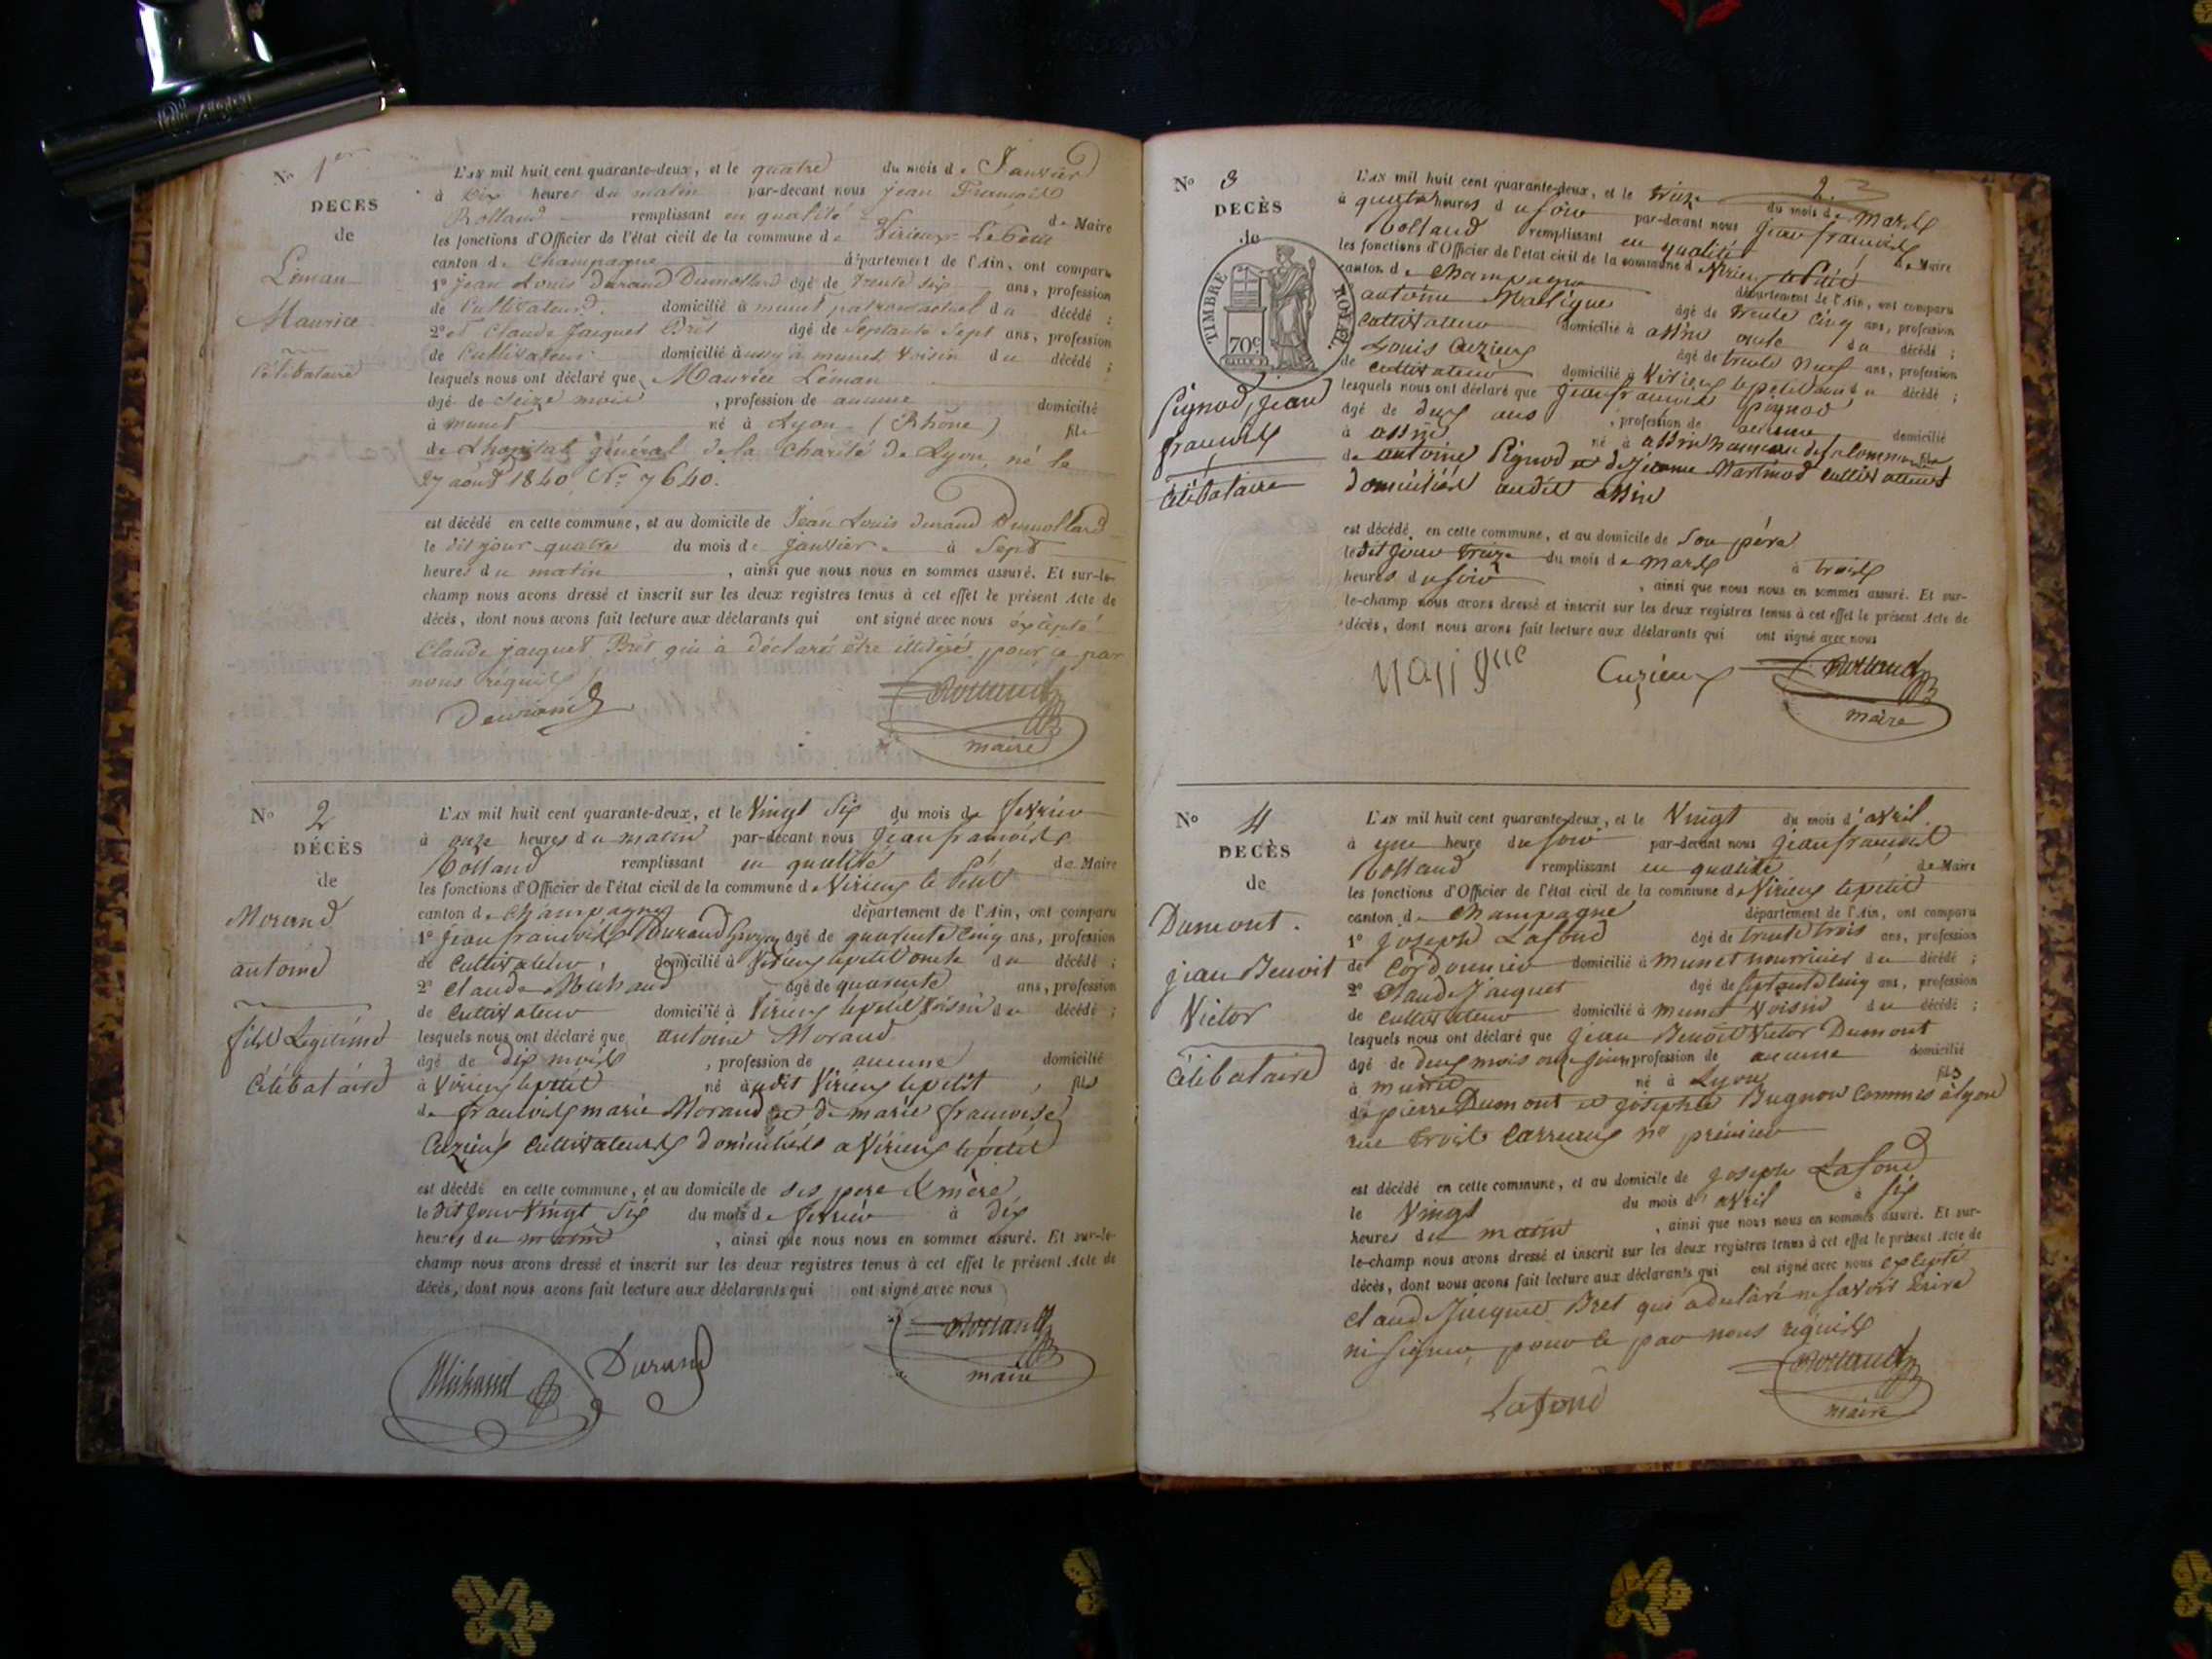 No 1er
DECES
de
Léman
Maurice
Célibataire
L'AN mil huit cent quarante-deux, et le quatre du mois de Janvier
à Dix heures du matin par-devant nous jean François
Rolland remplissant en qualité de Maire
les fonctions d'Officier de l'état civil de la commune de Virieux-Le Petit
canton de Champagne département de l'Ain, ont comparu
1º Jean Louis Durand Dumollard âgé de Trente six ans, profession
de Cultivateur domicilié à munet patron actuel du décédé ;
2º et Claude Jacquet Brêt âgé de Septante Sept ans, profession
de Cultivateur domicilié aussi à munet voisin du décédé ;
lesquels nous ont déclaré que Maurice Léman
âgé de Seize mois , profession de aucune domicilié
à munet né à Lyon (Rhône) fils
de L'hopital général de la Charité de Lyon, né le
27 août 1840 No 7640.
est décédé en cette commune, et au domicile de Jean Louis Durand Dumollard
le dit jour quatre du mois de janvier à Sept
heures du matin , ainsi que nous nous en sommes assuré. Et sur-le-
champ nous avons dressé et inscrit sur les deux registres tenus à cet effet le présent Acte de
décès, dont nous avons fait lecture aux déclarants qui ont signé avec nous excepté
Claude jacquet Brêt qui à déclaré être illitéré pour ce par
nous requis
Durand Rolland
maire
No 2
DÉCÈS
de
Morand
antoine
fils Légitime
Célibataire
L'AN mil huit cent quarante-deux, et le Vingt Six du mois de fevrier
à onze heures du matin par-devant nous jean françois
Rolland remplissant en qualité de Maire
les fonctions d'Officier de l'état civil de la commune de Virieux le Petit
canton de Champagne département de l'Ain, ont comparu
1º jean françois Durand âgé de quarante Cinq ans, profession
de Cultivateur, domicilié à Virieux lepetit oncle du décédé ;
2º Claude Michaud âgé de quarante ans, profession
de Cultivateur domicilié à Virieux lepetit voisin du décédé ;
lesquels nous ont déclaré que antoine Morand
âgé de dix mois , profession de aucune domicilié
à Virieux lepetit né audit Virieux lepetit , fils
de françois marie Morand et de marie françoise
Cuzieux Cultivateurs domiciliés a Virieux lepetit
est décédé en cette commune, et au domicile de ses pere & mère
le dit jour Vingt Six du mois de fevrier à dix
heures du matin , ainsi que nous nous en sommes assuré. Et sur-le-
champ nous avons dressé et inscrit sur les deux registres tenus à cet effet le présent Acte de
décès, dont nous avons fait lecture aux déclarants qui ont signé avec nous
Michaud Durand Rolland
maire
2
No 3
DECÈS
de
TIMBRE ROYAL
70c
Pignod, jean
françois
Célibataire
L'AN mil huit cent quarante-deux, et le treize du mois de Mars
à quatre heures du soir par-devant nous jean françois
Rolland remplissant en qualité de Maire
les fonctions d'Officier de l'état civil de la commune de Virieux lePetit
canton de Champagne département de l'Ain, ont comparu
antoine Massigue âgé de trente Cinq ans, profession
Cultivateur domicilié à assin oncle du décédé ;
Louis Cuzieux âgé de trente Neuf ans, profession
de Cultivateur domicilié à Virieux lepetit du décédé ;
lesquels nous ont déclaré que jean françois Pignod
âgé de deux ans , profession de aucune domicilié
à assin né à assin hameau de la Commune fils
de antoine Pignod et de jéanne Martinod Cultivateurs
domiciliés audit assin
est décédé en cette commune, et au domicile de Son père
le dit jour treize du mois de Mars à trois
heures du soir , ainsi que nous nous en sommes assuré. Et sur-
le-champ nous avons dressé et inscrit sur les deux registres tenus à cet effet le présent Acte de
décès, dont nous avons fait lecture aux déclarants qui ont signé avec nous
Cuzieux Rolland
maire
No 4
DECÈS
de
Dumont.
jean Benoit
Victor
Célibataire
L'AN mil huit cent quarante-deux, et le Vingt du mois d'avril
à une heure du soir par-devant nous jean françois
Rolland remplissant en qualité de Maire
les fonctions d'Officier de l'état civil de la commune de Virieux lepetit
canton de Champagne département de l'Ain, ont comparu
1º joseph Lafond âgé de trente trois ans, profession
de Cordonnier domicilié à munet nourricier du décédé ;
2º Claude Jacquet âgé de septante Cinq ans, profession
de Cultivateur domicilié à munet Voisin du décédé ;
lesquels nous ont déclaré que jean Benoit Victor Dumont
âgé de deux mois onze jours profession de aucune domicilié
à munet né à Lyon fils
de pierre Dumont et josephte Bugnon Commis à lyon
rue trois Carreaux no premier
est décédé en cette commune, et au domicile de joseph Lafond
le Vingt du mois d'avril à six
heures du matin , ainsi que nous nous en sommes assuré. Et sur-
le-champ nous avons dressé et inscrit sur les deux registres tenus à cet effet le présent Acte de
décès, dont nous avons fait lecture aux déclarants qui ont signé avec nous excepté
Claude Jacquet Bret qui a declaré ne savoir Ecrire
ni signer, pour ce par nous requis
Lafond Rolland
maire